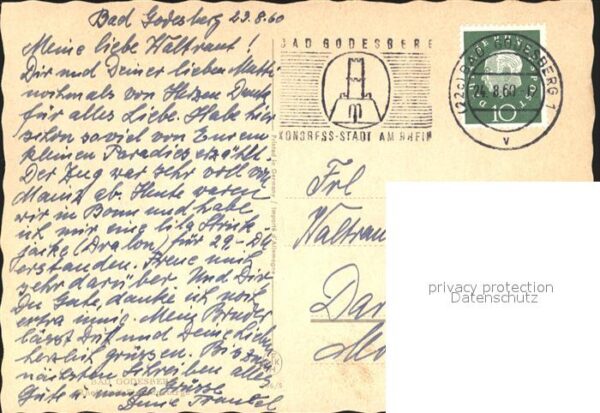 Bad Godesberg 23.8.60
Meine liebe Waltraut!
Dir und Deiner lieben Mutti
nochmals von Herzen Dank
für alles Liebe. Habe hier
schon soviel von Eurem
kleinen Paradies erzählt.
Der Zug war sehr voll von
Mainz ab. Heute waren
wir in Bonn und habe
ich mir eine lila Strick
jacke (Dralon) für 29.- DM
erstanden. Freue mich
sehr darüber. Und Dir
Du Gute, danke ich noch
extra innig. Mein Bruder
lässt Dich und Deine Lieben
herzlich grüssen. Bis zum
nächsten Schreiben alles
Gute u. innige Grüsse
Deine Trautel
BAD GODESBERG
BAD GODESBERG
KONGRESS-STADT AM RHEIN
(22c) BAD GODESBERG 1
24.8.60
v
10
Frl
Waltrau
Dar
privacy protection
Datenschutz